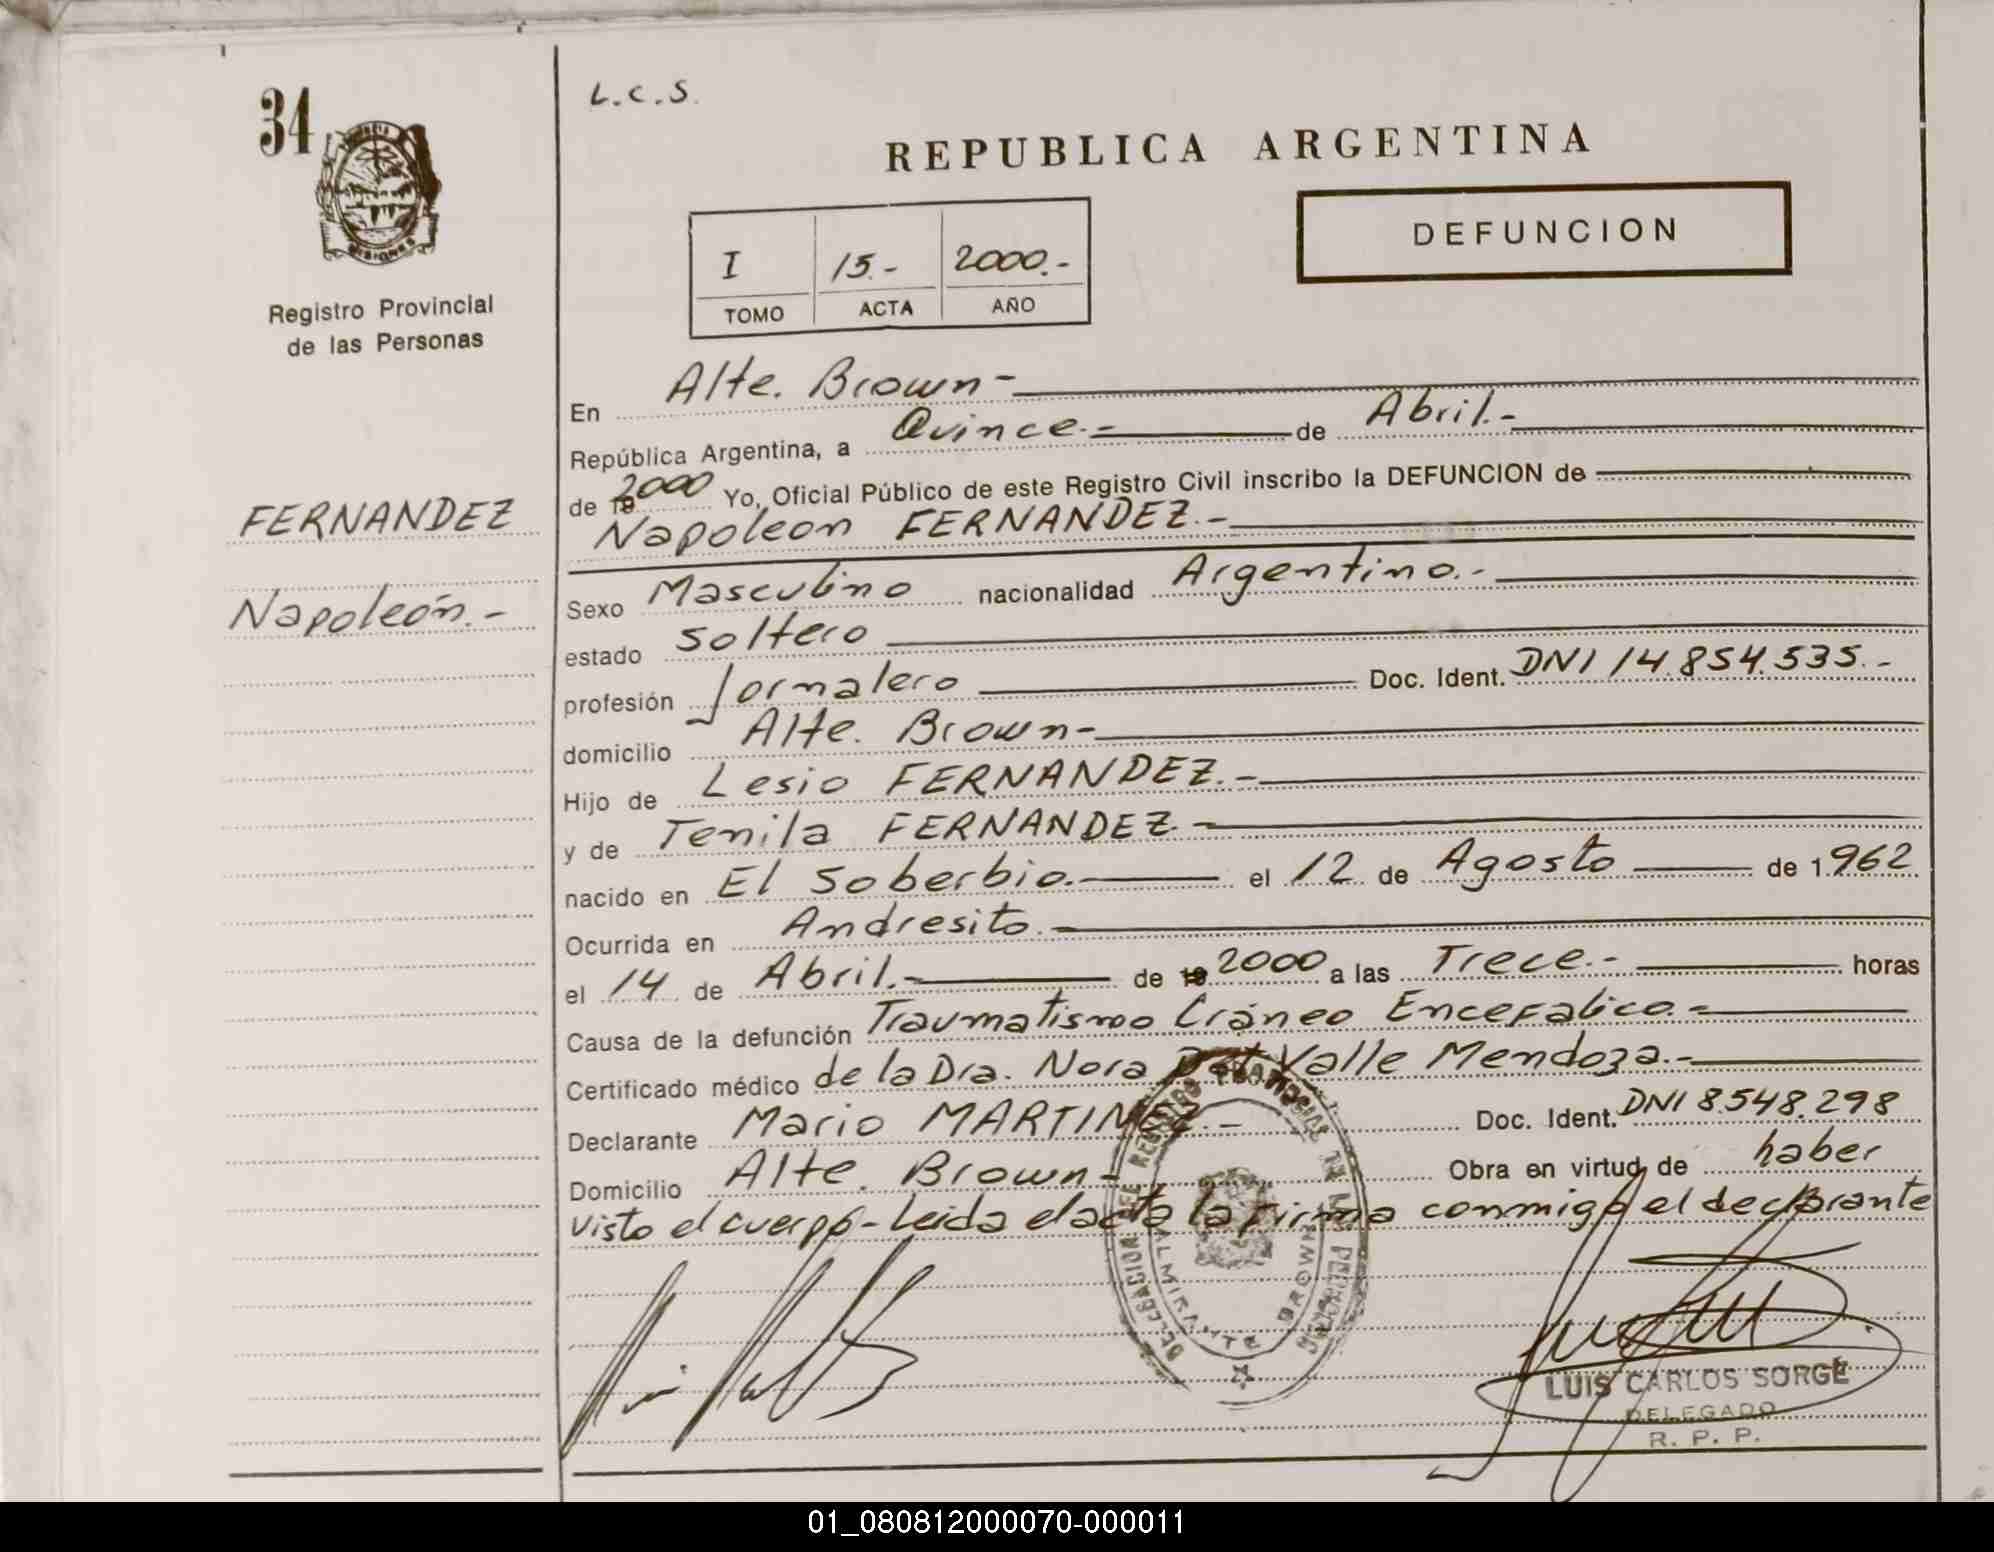 34
MISIONES
Registro Provincial
de las Personas
FERNANDEZ
Napoleón.-
L.C.S.
REPUBLICA ARGENTINA
DEFUNCION
I 15.- 2000.-
TOMO ACTA AÑO
En Alte. Brown-
República Argentina, a Quince.- de Abril.-
de 19 2000 Yo, Oficial Público de este Registro Civil inscribo la DEFUNCION de
Napoleon FERNANDEZ.-
Sexo Masculino nacionalidad Argentino.-
estado soltero
profesión Jornalero Doc. Ident. DNI 14.854.535.-
domicilio Alte. Brown-
Hijo de Lesio FERNANDEZ.-
y de Tenila FERNANDEZ.-
nacido en El Soberbio. el 12 de Agosto de 1962
Ocurrida en Andresito.-
el 14 de Abril.- de 19 2000 a las Trece.- horas
Causa de la defunción Traumatismo Cráneo Encefalico.-
Certificado médico de la Dra. Nora Del Valle Mendoza.-
Declarante Mario MARTINEZ.- Doc. Ident. DNI 8.548.298
Domicilio Alte. Brown- Obra en virtud de haber
visto el cuerpo-Leida el acta la firma conmigo el declarante
DELEGACION DEL REGISTRO PROVINCIAL DE LAS PERSONAS
ALMIRANTE BROWN
MISIONES
LUIS CARLOS SORGE
DELEGADO
R. P. P.
01_080812000070-000011